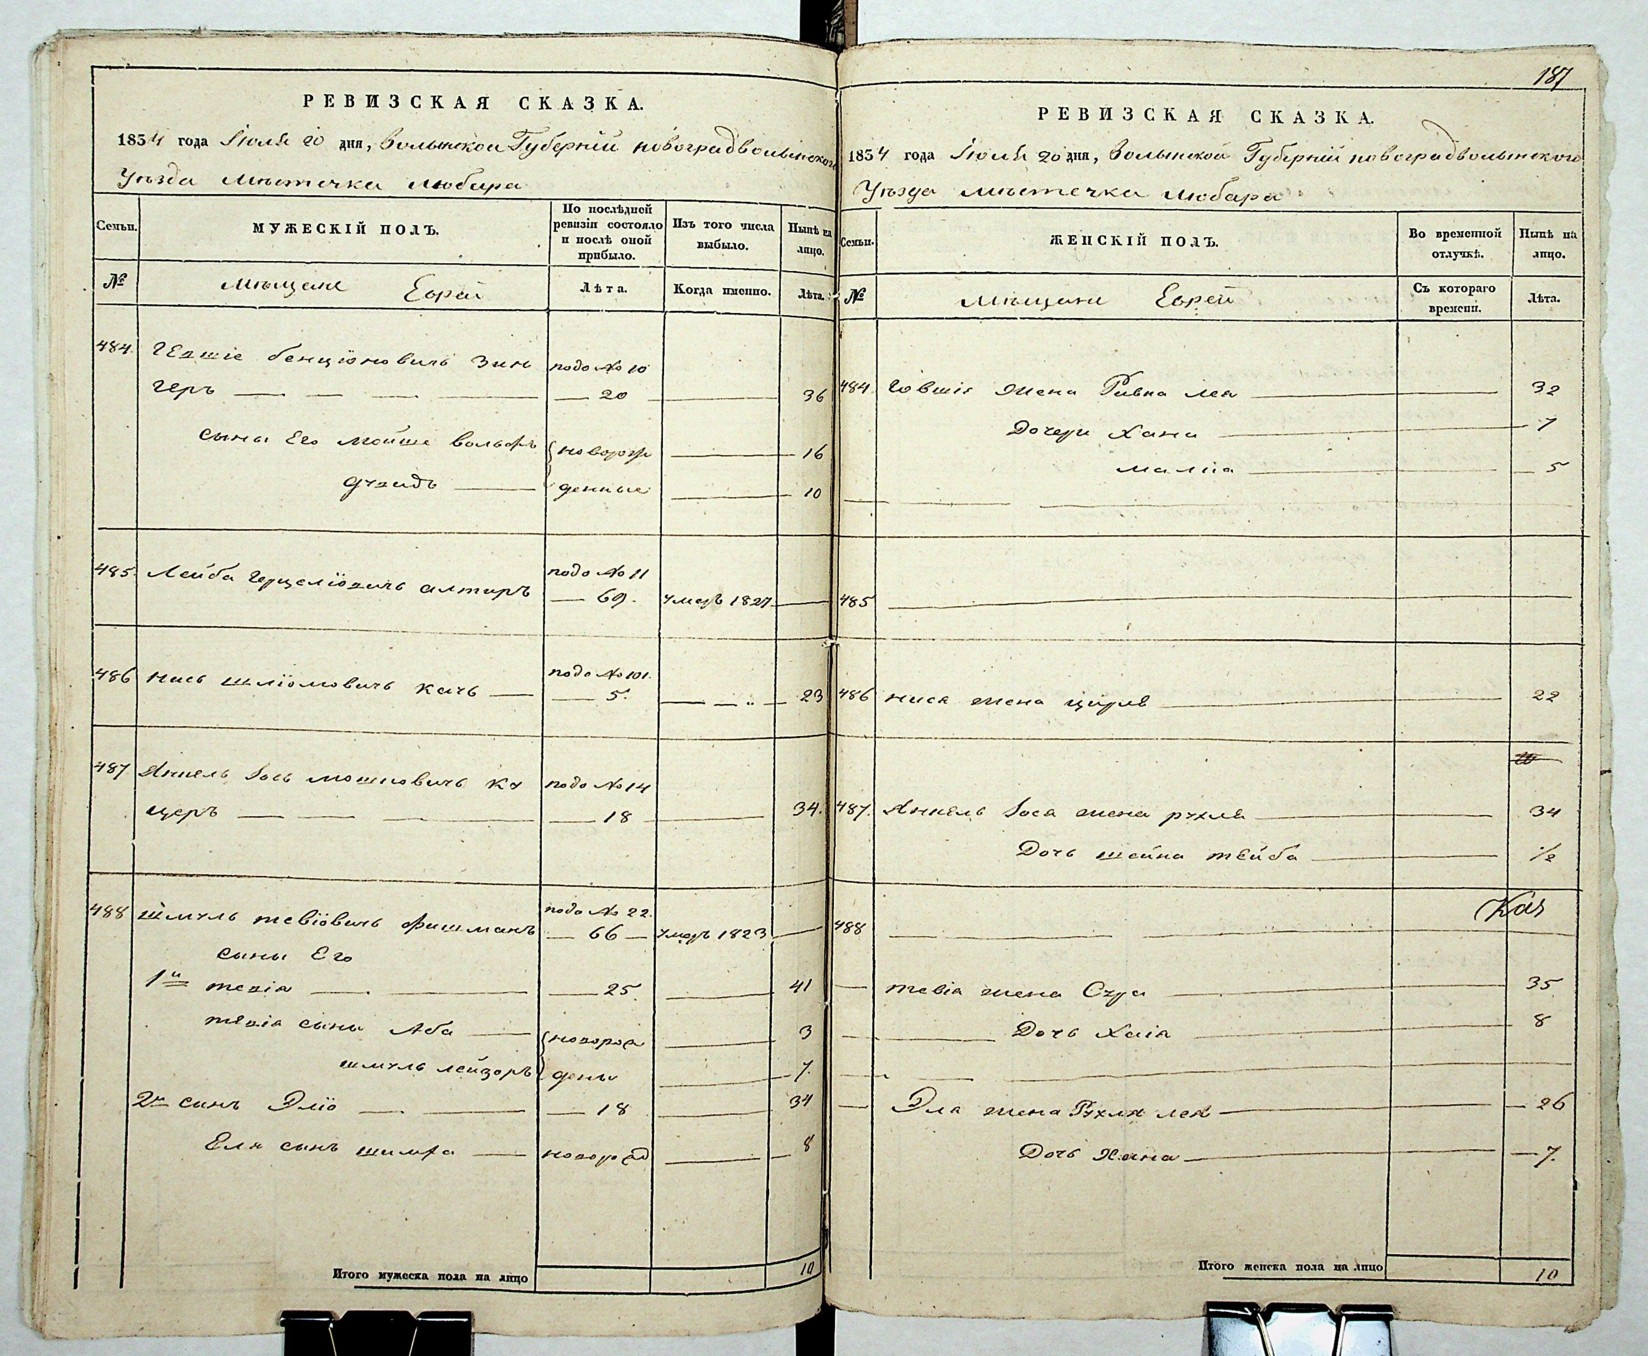 РЕВИЗСКАЯ СКАЗКА.
1834 года Іюля 20 дня, Волынской Губерніи новоградволынского
Уѣзда Мѣстечка Любара
Семьи.
МУЖЕСКІЙ ПОЛЪ.
По послѣдней ревизіи состояло и послѣ оной прибыло.
Изъ того числа выбыло.
Нынѣ на лицо.
№
Мѣщане Евреи
Лѣта.
Когда именно.
Лѣта.
484 бенціоновичь Зин подо № 10
геръ — 20 — 36
сыны Его Мойше вольфъ новорож — 16
денные — 10
485 Лейба Герцеліовичь алтаръ подо № 11
— 69. умеръ 1827 —
486 нись шліомовичь качь — подо № 101.
— 5. — 23
487 Анкель Іось мошковичь ку подо № 14
церъ — 18 — 34.
488 шмуль тевіовичь фишманъ подо № 22.
— 66 — умеръ 1823 —
сыны Его
1й тевіа — 25. — 41
тевіа сыны Аба — новорож — 3
шмуль лейзоръ дены — 7.
2й сынъ Эліо — 18 — 34
Еля сынъ — новорож — 8
Итого мужеска пола на лицо 10
187
РЕВИЗСКАЯ СКАЗКА.
1834 года Іюля 20 дня, Волынской Губерніи новоградволынского
Уѣзда мѣстечка Любара
Семьи.
ЖЕНСКІЙ ПОЛЪ.
Во временной отлучкѣ.
Нынѣ на лицо.
№
Мѣщане Евреи
Съ котораго времени.
Лѣта.
484. жена Ривка лея — 32
Дочери Хана — 7
малка — 5
485 —
486 ниса жена ципра — 22
487. Анкель Іоса жена рухля — 34
Дочь шейна тейба — 1/2
488 —
тевіа жена Сура — 35
Дочь Хаіа — 8
Эла жена Рухля лея — 26
Дочь Хана — 7.
Итого женска пола на лицо 10